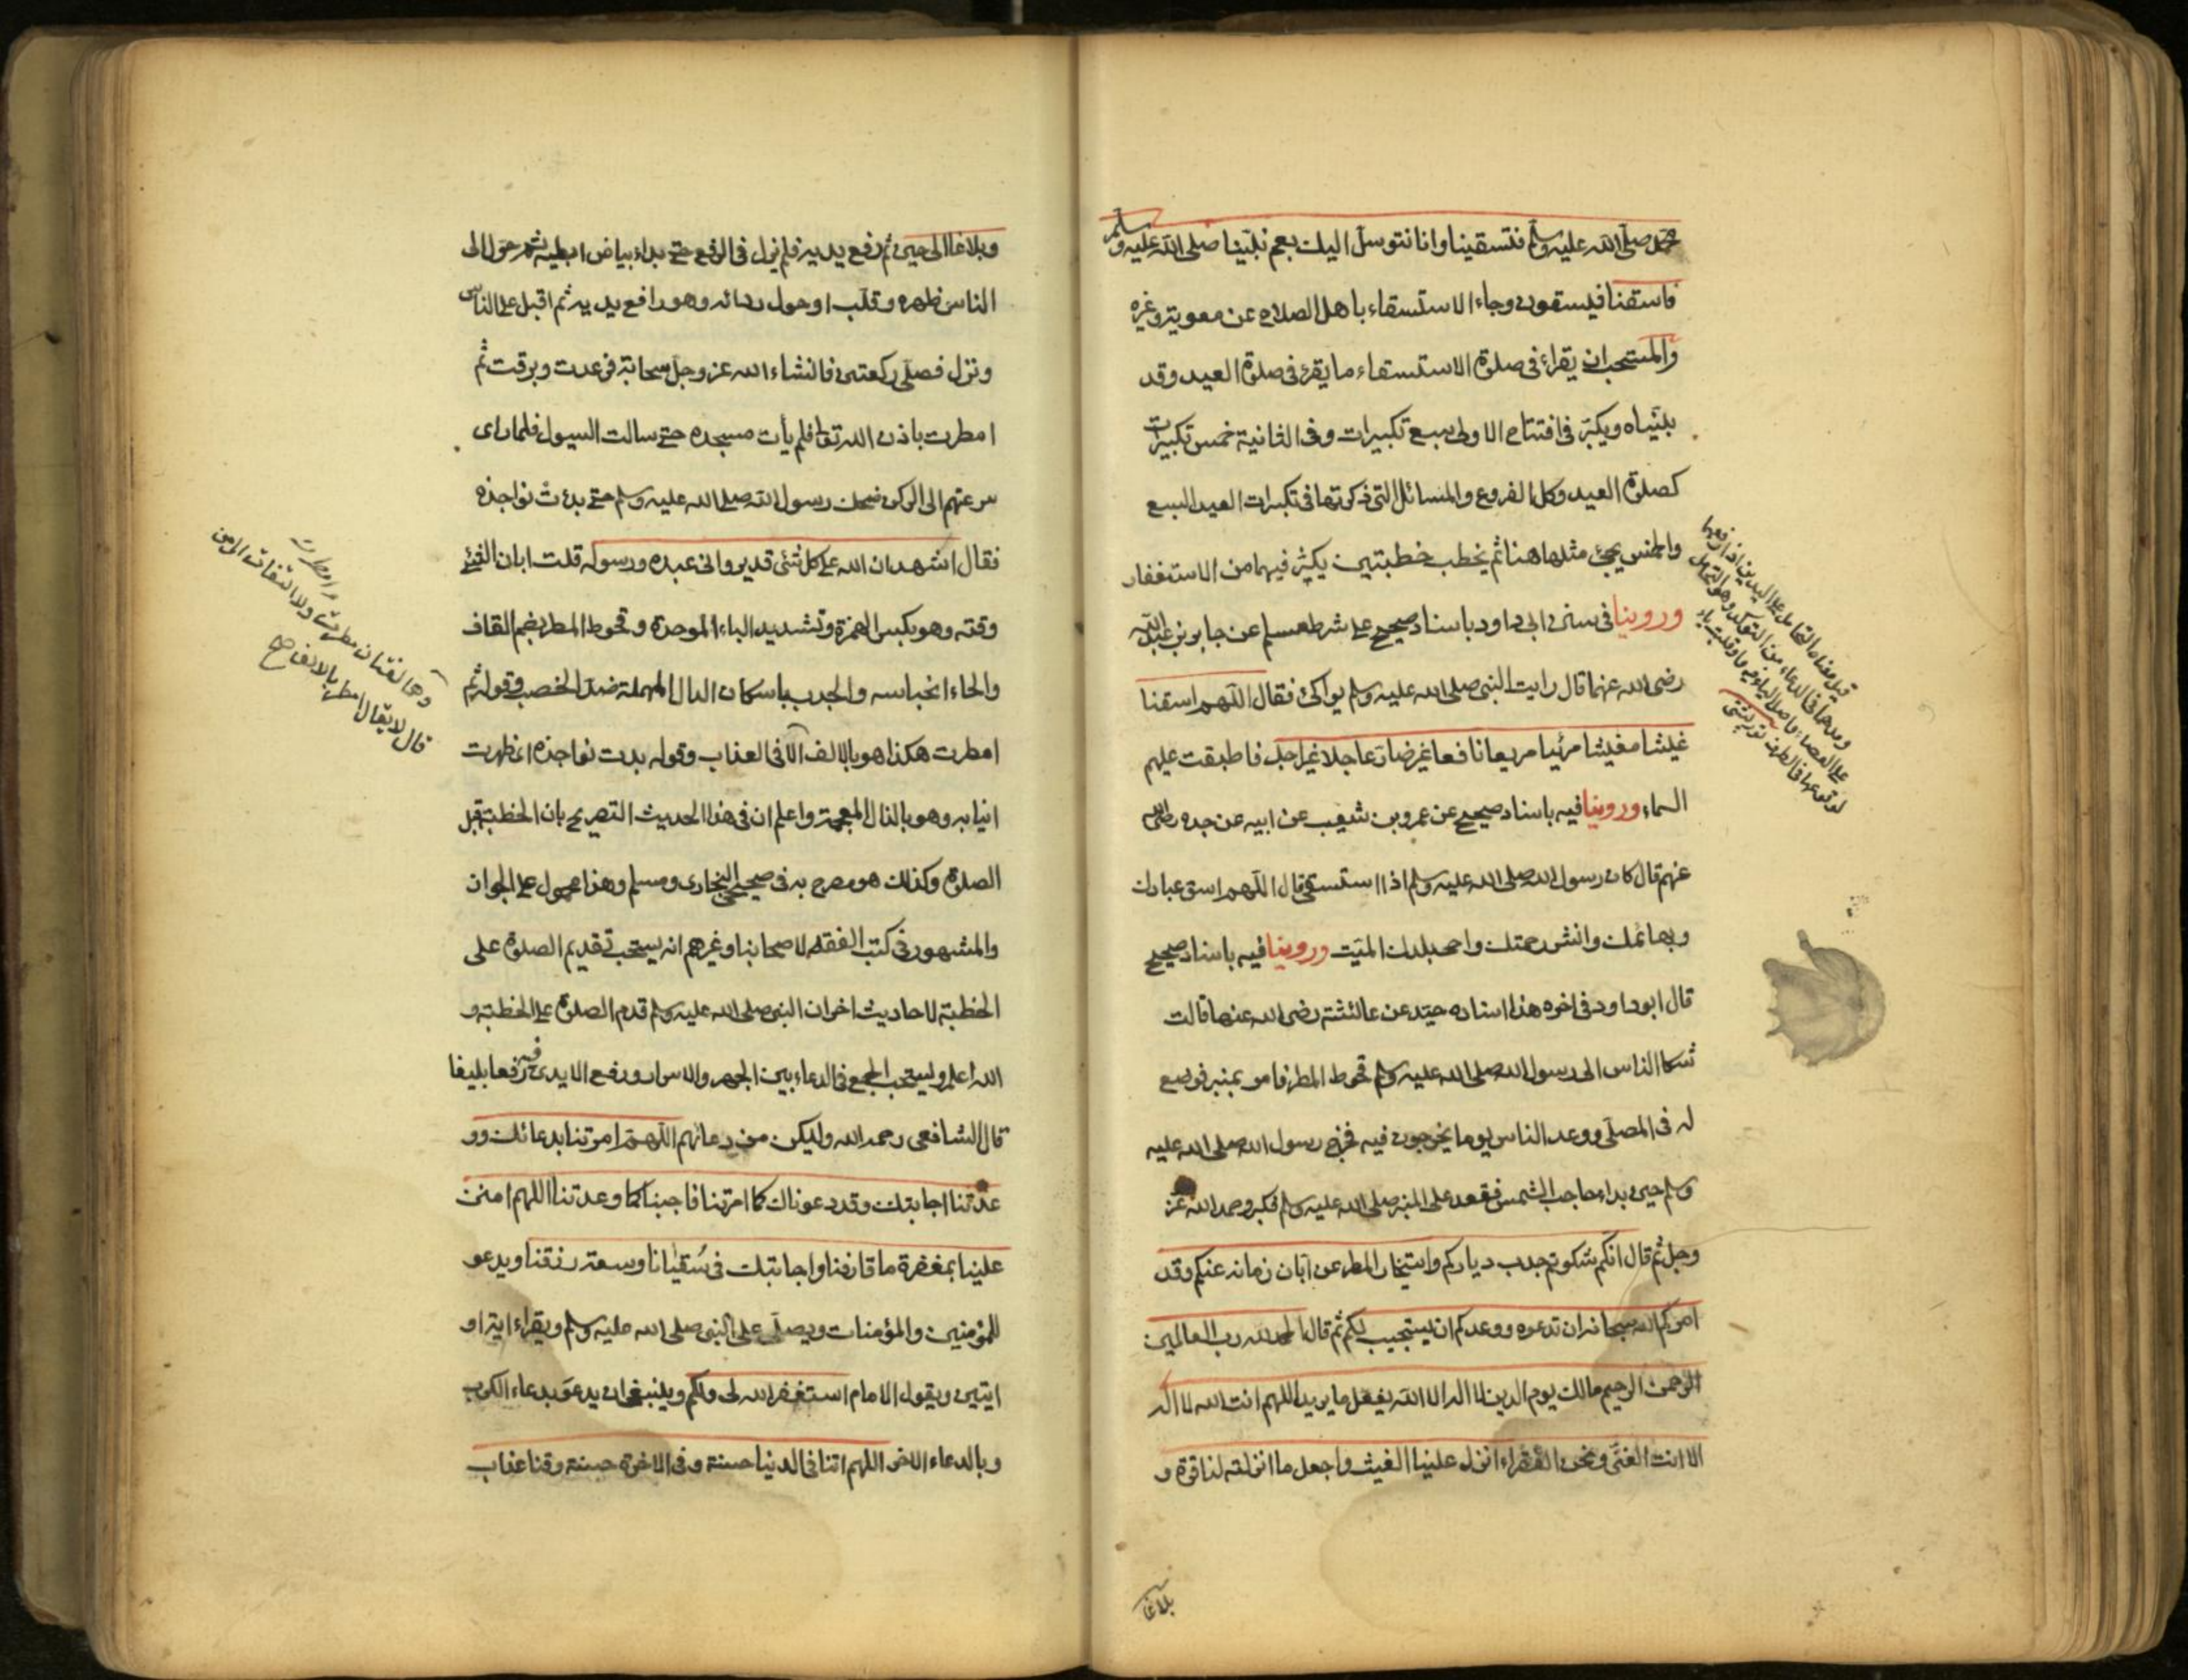 محمد صلى الله عليه وسلم فتسقينا وانا نتوسل اليك بعم نبينا صلى الله عليه وسلم
فاسقنا فيسقون وجاء الاستسقاء باهل الصلاح عن معوية وغيره
والمستحب ان يقراء في صلوة الاستسقاء ما يقرء في صلوة العيد وقد
بيناه ويكبر في افتتاح الاولى سبع تكبيرات وفى الثانية خمس تكبيرات
كصلوة العيد وكل الفروع والمسائل التي ذكرتها في تكبيرات العيد السبع
والخمس يجئ مثلها هنا ثم يخطب خطبتين يكثر فيهما من الاستغفار
وروينا في سنن ابى داود باسناد صحيح على شرط مسلم عن جابر بن عبد الله
رضى الله عنهما قال رايت النبى صلى الله عليه وسلم يواكئ فقال اللهم اسقنا
غيثا مغيثا مرئيا مريعا نافعا غير ضار عاجلا غير اجل فاطبقت عليهم
السماء وروينا فيه باسناد صحيح عن عمرو بن شعيب عن ابيه عن جده رضى الله
عنهم قال كان رسول الله صلى الله عليه وسلم اذا استسقى قال اللهم اسق عبادك
وبهائمك وانشر رحمتك واحى بلدك الميت وروينا فيه باسناد صحيح
قال ابو داود في اخره هذا اسناده جيد عن عائشة رضى الله عنها قالت
شكا الناس الى رسول الله صلى الله عليه وسلم قحوط المطر فامر بمنبر فوضع
له فى المصلى ووعد الناس يوما يخرجون فيه فخرج رسول الله صلى الله عليه
وسلم حين بداء حاجب الشمس فقعد على المنبر صلى الله عليه وسلم فكبر وحمد الله عز
وجل ثم قال انكم شكوتم جدب دياركم واستيخار المطر عن ابان زمانه عنكم وقد
امركم الله سبحانه ان تدعوه ووعدكم ان يستجيب لكم ثم قال الحمد لله رب العالمين
الرحمن الرحيم مالك يوم الدين لا اله الا الله يفعل ما يريد اللهم انت الله لا اله
الا انت الغنى ونحن الفقراء انزل علينا الغيث واجعل ما انزلته لنا قوة و
بلاغا
وبلاغا الى حين ثم رفع يديه فلم يزل في الرفع حتى بداء بياض ابطيه ثم حول الى
الناس ظهره وقلب او حول ردائه وهو رافع يديه ثم اقبل على الناس
ونزل فصلى ركعتين فانشاء الله عز وجل سحابة فرعدت وبرقت ثم
امطرت باذن الله تعالى فلم يأت مسجده حتى سالت السيول فلما راى
سرعتهم الى الركن ضحك رسول الله صلى الله عليه وسلم حتى بدت نواجذه
فقال اشهد ان الله على كل شئ قدير وانى عبده ورسوله قلت ابان الشئ
وقته وهو بكسر الهمزة وتشديد الباء الموحدة وقحوط المطر بضم القاف
والحاء احتباسه والجدب باسكان الدال المهملة ضد الخصب وقوله ثم
امطرت هكذا هو بالالف الا في العذاب وقوله بدت نواجذه اى ظهرت
انيابه وهو بالذال المعجمة واعلم ان في هذا الحديث التصريح بان الخطبة قبل
الصلوة وكذلك هو مصرح به في صحيحى البخارى ومسلم وهذا محمول على الجواز
والمشهور في كتب الفقه لاصحابنا وغيرهم انه يستحب تقديم الصلوة على
الخطبة لاحاديث اخر ان النبى صلى الله عليه وسلم قدم الصلوة على الخطبة و
الله اعلم ويستحب الجمع في الدعاء بين الجهر والاسرار ورفع الايدى فيه رفعا بليغا
قال الشافعى رحمه الله وليكن من دعائهم اللهم امرتنا بدعائك وو
عدتنا اجابتك وقد دعوناك كما امرتنا فاجبنا كما وعدتنا اللهم امنن
علينا بمغفرة ما قارفنا واجابتك في سقيانا وسعة رزقنا ويدعو
للمؤمنين والمؤمنات ويصلى على النبى صلى الله عليه وسلم ويقراء اية او
ايتين ويقول الامام استغفر الله لى ولكم وينبغى ان يدعو بدعاء الكرب
وبالدعاء الاخر اللهم اتنا في الدنيا حسنة وفى الاخرة حسنة وقنا عذاب